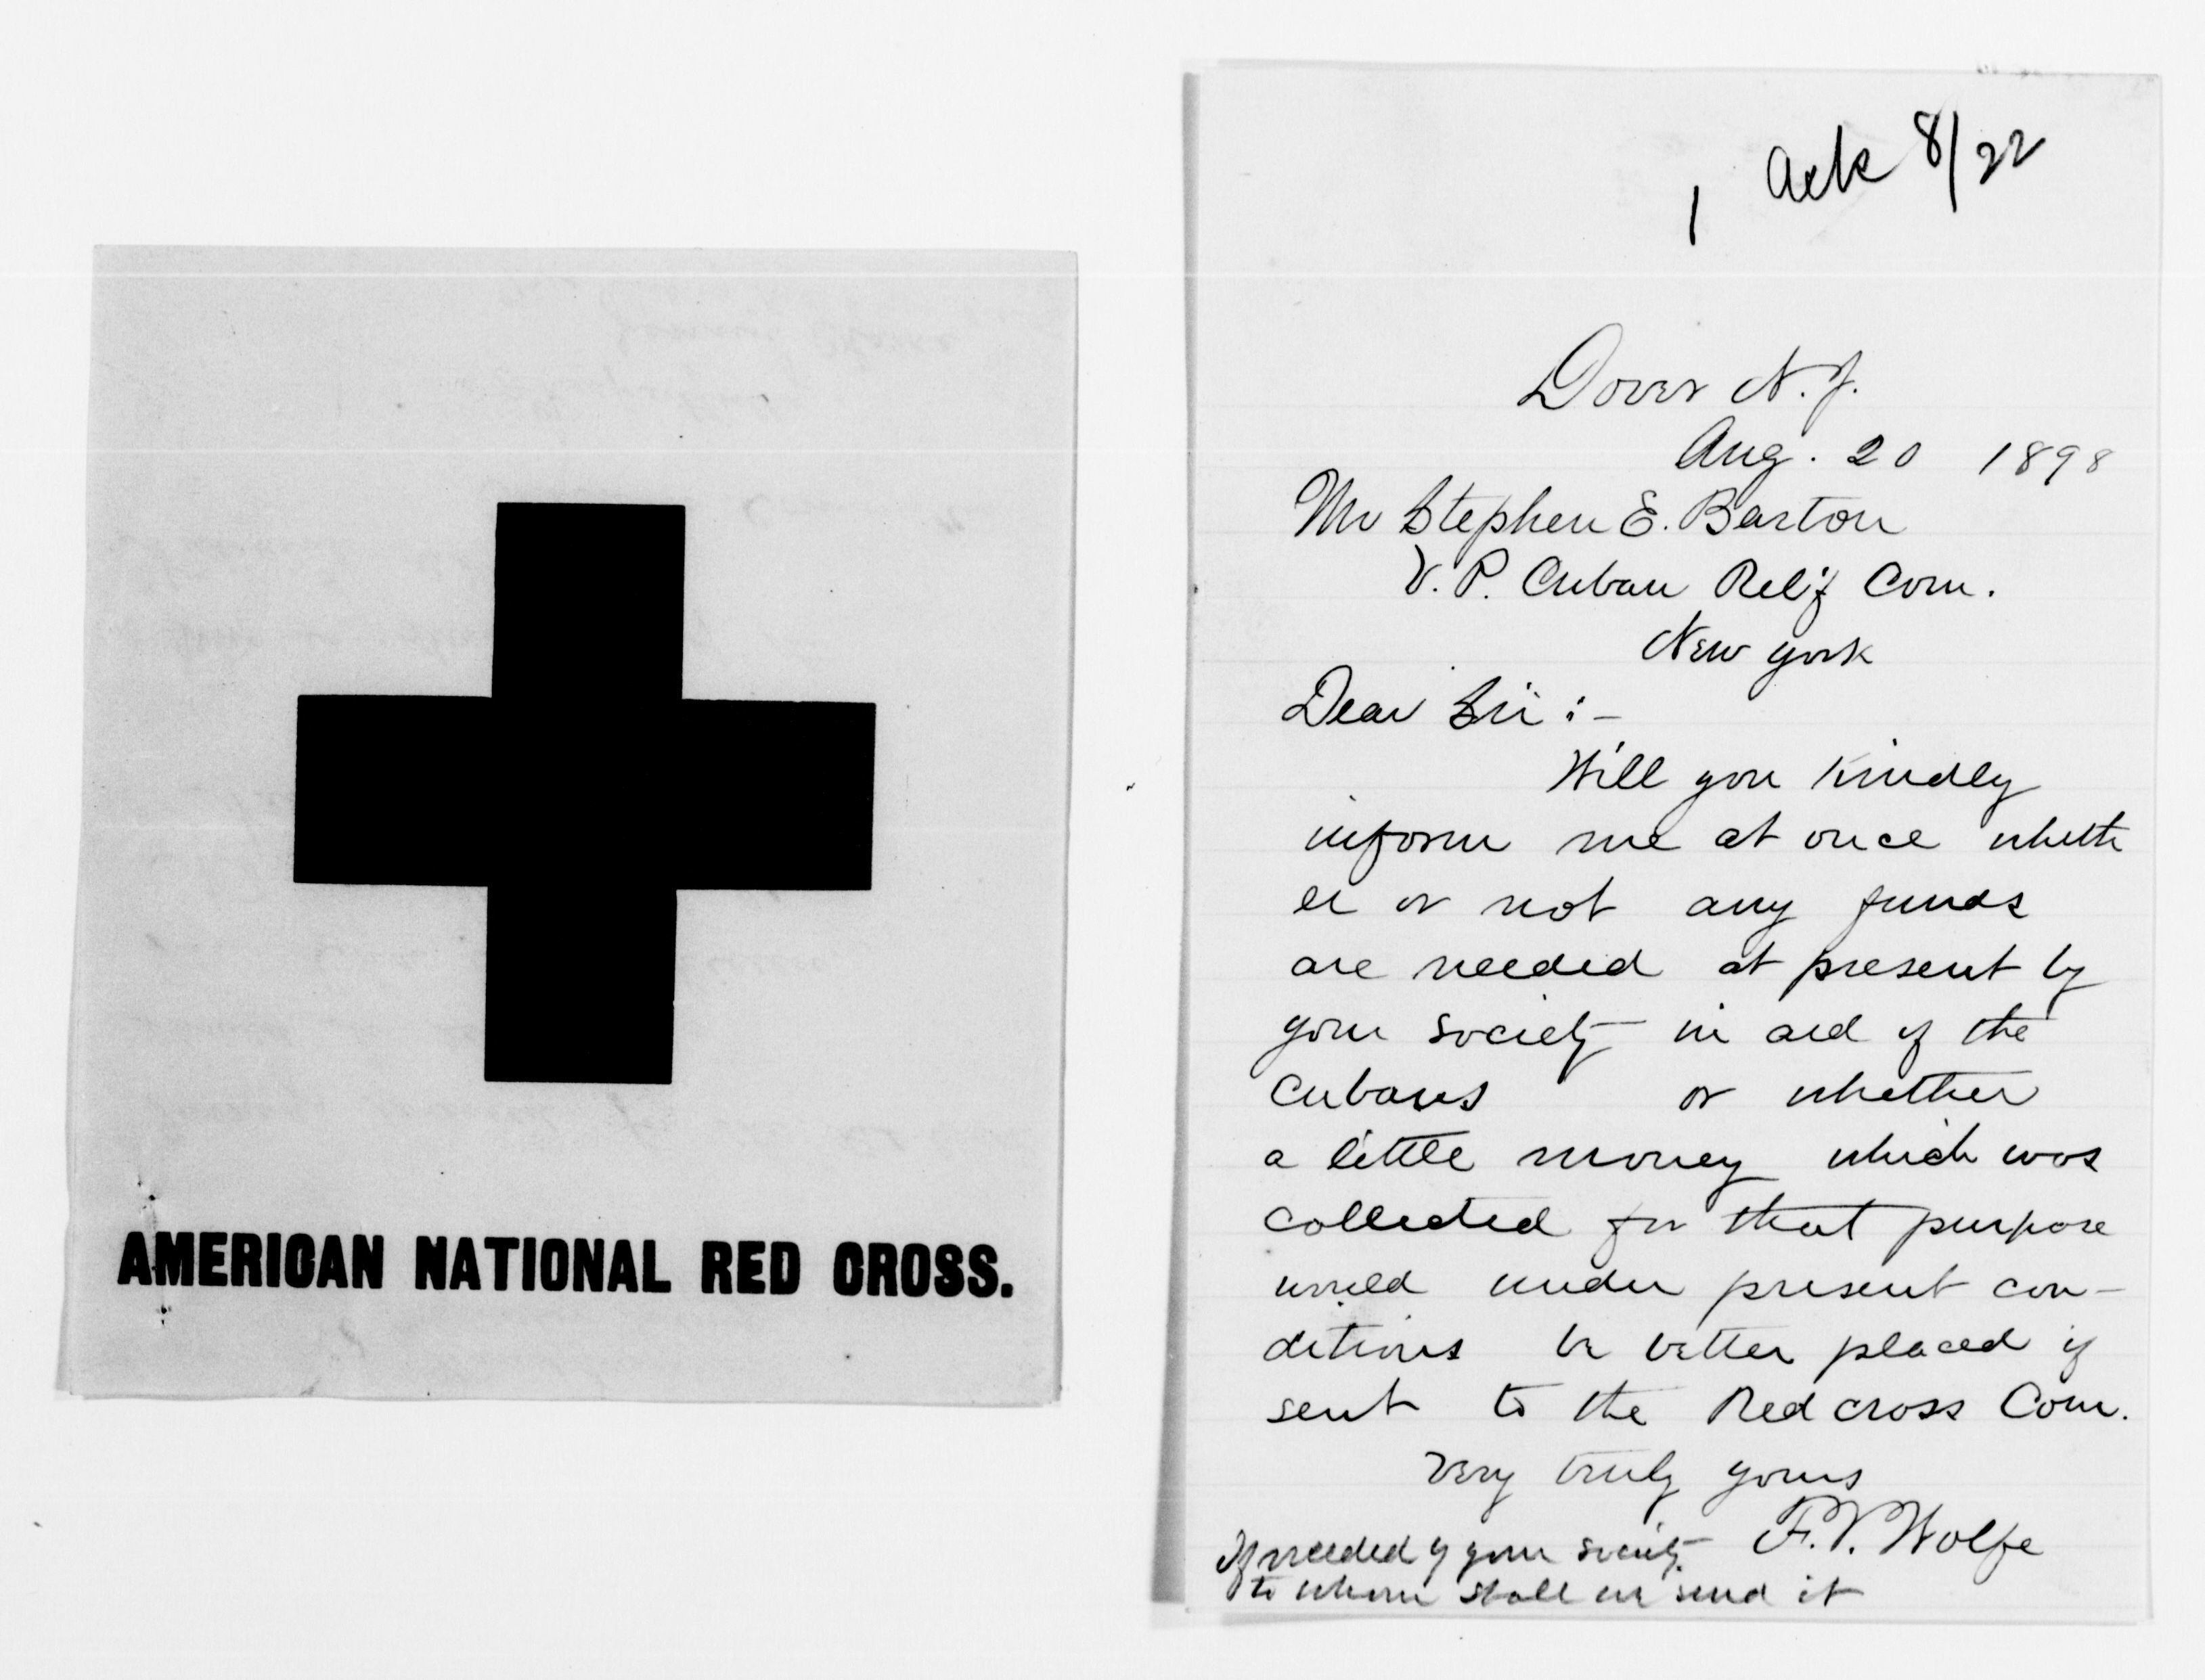 AMERICAN NATIONAL RED CROSS.
1 Ack 8/22
Dover N.J.
Aug. 20 1898
Mr Stephen E. Barton
V. P. Cuban Relif Com.
New York
Dear Sir :-
Will you kindly
inform me at once wheth
er or not any funds
are needed at present by
your society in aid of the
Cubans or whether
a little money which was
collected for that purpose
would under present con-
ditions be better placed if
sent to the Red cross Com.
very truly yours
F. V. Wolfe
If needed by your society
to whom shall we send it